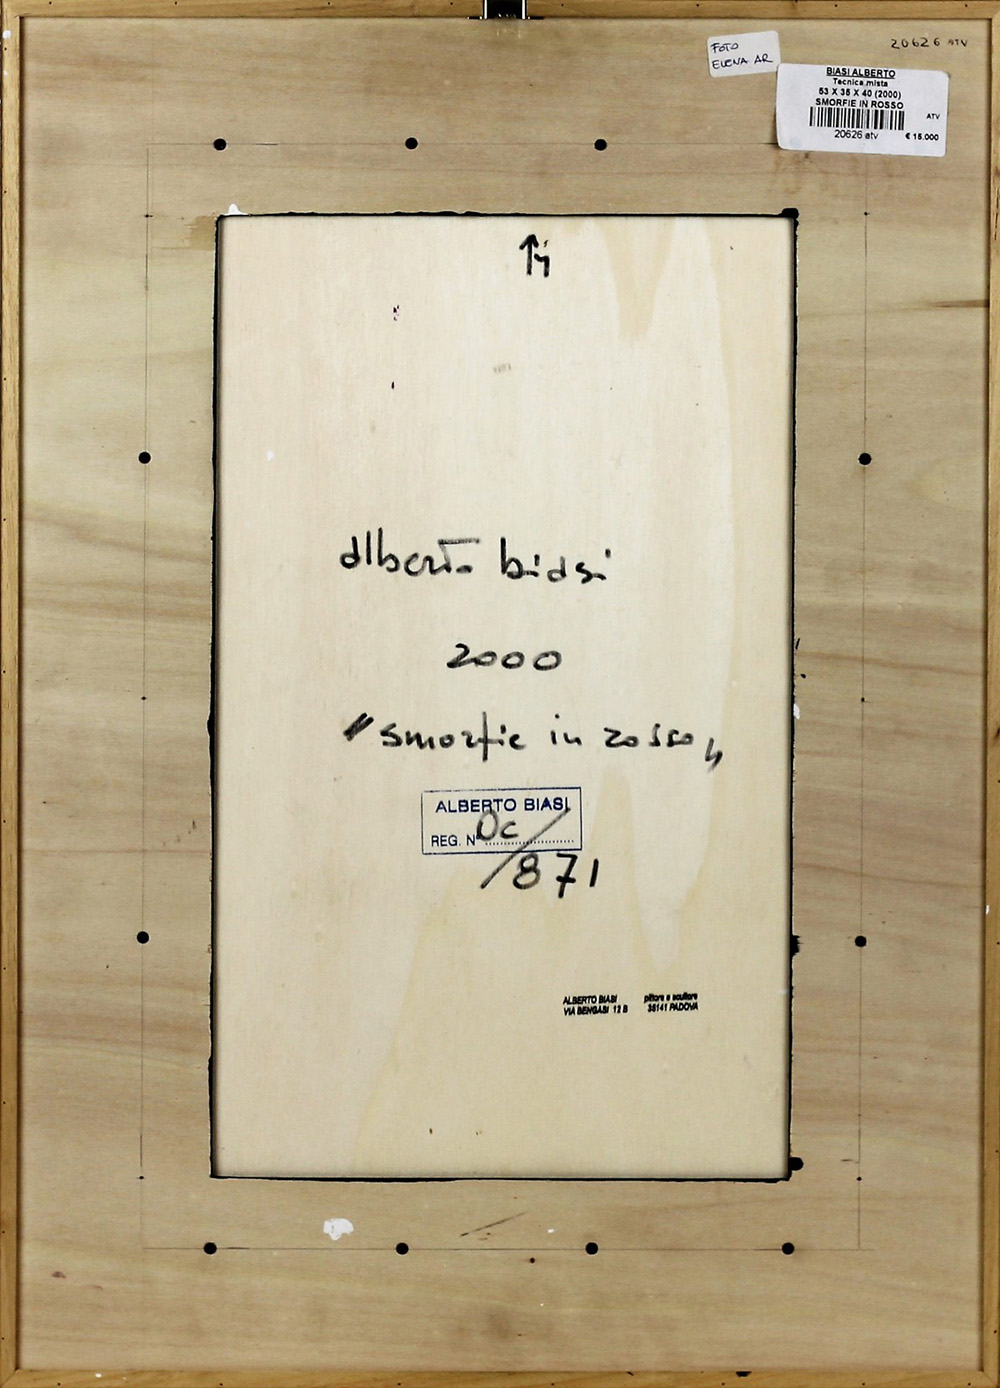 20626 ATV
FOTO
ELENA AR
BIASI ALBERTO
Tecnica mista
53 X 35 X 40 (2000)
SMORFIE IN ROSSO
ATV
20626 atv € 15.000
alberto biasi
2000
"smorfie in rosso"
ALBERTO BIASI
REG. N° Oc/
871
ALBERTO BIASI pittore e scultore
VIA BENGASI 12 B 35141 PADOVA